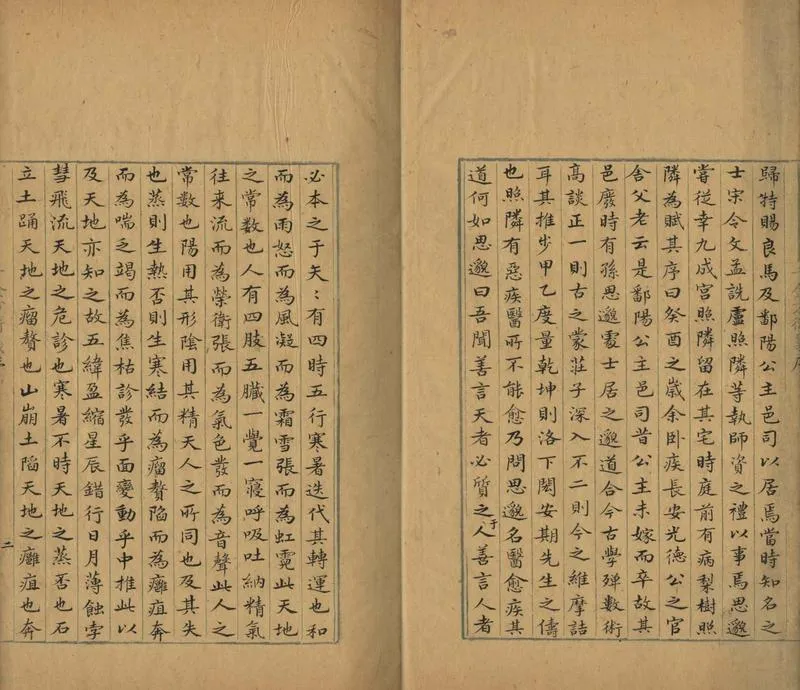 歸特賜良馬及鄱陽公主邑司以居焉當時知名之
士宋令文孟詵盧照隣等執師資之禮以事焉思邈
嘗從幸九成宮照隣留在其宅時庭前有病梨樹照
隣為賦其序曰癸酉之歲余臥疾長安光德公之官
舍父老云是鄱陽公主邑司昔公主未嫁而卒故其
邑廢時有孫思邈處士居之邈道合今古學殫數術
高談正一則古之蒙莊子深入不二則今之維摩詰
耳其推步甲乙度量乾坤則洛下閎安期先生之儔
也照隣有惡疾醫所不能愈乃問思邈名醫愈疾其
道何如思邈曰吾聞善言天者必質之于人善言人者
必本之于天：有四時五行寒暑迭代其轉運也和
而為雨怒而為風凝而為霜雪張而為虹霓此天地
之常數也人有四肢五臟一覺一寢呼吸吐納精氣
往來流而為榮衛張而為氣色發而為音聲此人之
常數也陽用其形陰用其精天人之所同也及其失
也蒸則生熱否則生寒結而為瘤贅陷而為癰疽奔
而為喘乏竭而為焦枯診發乎面變動乎中推此以
及天地亦知之故五緯盈縮星辰錯行日月薄蝕孛
彗飛流天地之危診也寒暑不時天地之蒸否也石
立土踊天地之瘤贅也山崩土陷天地之癰疽也奔
二